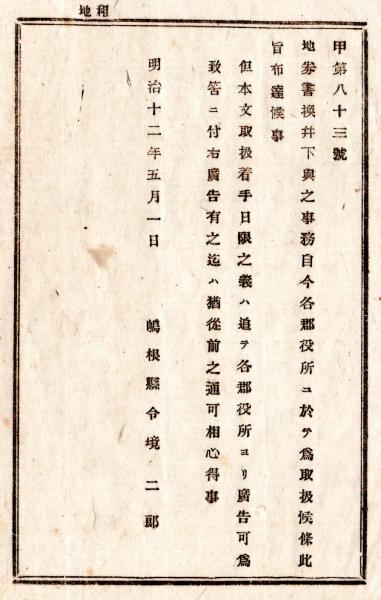 地租
甲第八十三號
地券書換并下與之事務自今各郡役所ニ於テ爲取扱候條此
旨布達候事
但本文取扱着手日限之義ハ追テ各郡役所ヨリ廣告可爲
致筈ニ付右廣告有之迄ハ猶從前之通可相心得事
明治十二年五月一日　嶋根縣令境二郎